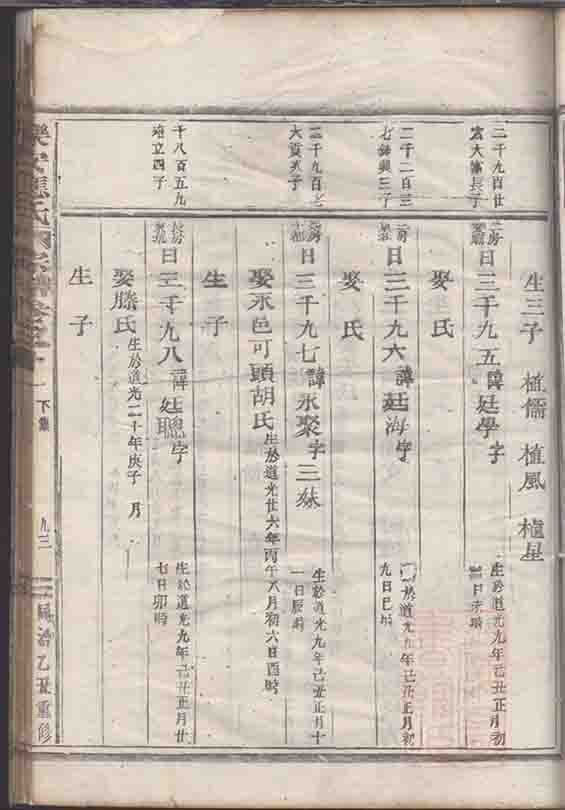 生三子 植儒 植風 植星
二千九百廿
宏大滿長子
日三千九五諱廷學字
生於道光九年己丑正月初
日未時
娶氏
二千二百三
七錦與三子
日三千九六諱廷海字
於道光九年己丑正月初
九日巳時
娶氏
二千九百七
大貢英子
日三千九七諱永聚字三妹
生於道光九年己丑正月十
一日辰時
娶永邑可頭胡氏生於道光廿六年丙午八月初六日酉時
生子
千八百五九
培立四子
長房
日三千九八諱廷聰字
生於道光九年己丑正月廿
七日卯時
娶滕氏生於道光二十年庚子 月
生子
應氏宗譜 下集 九三 同治乙丑重修